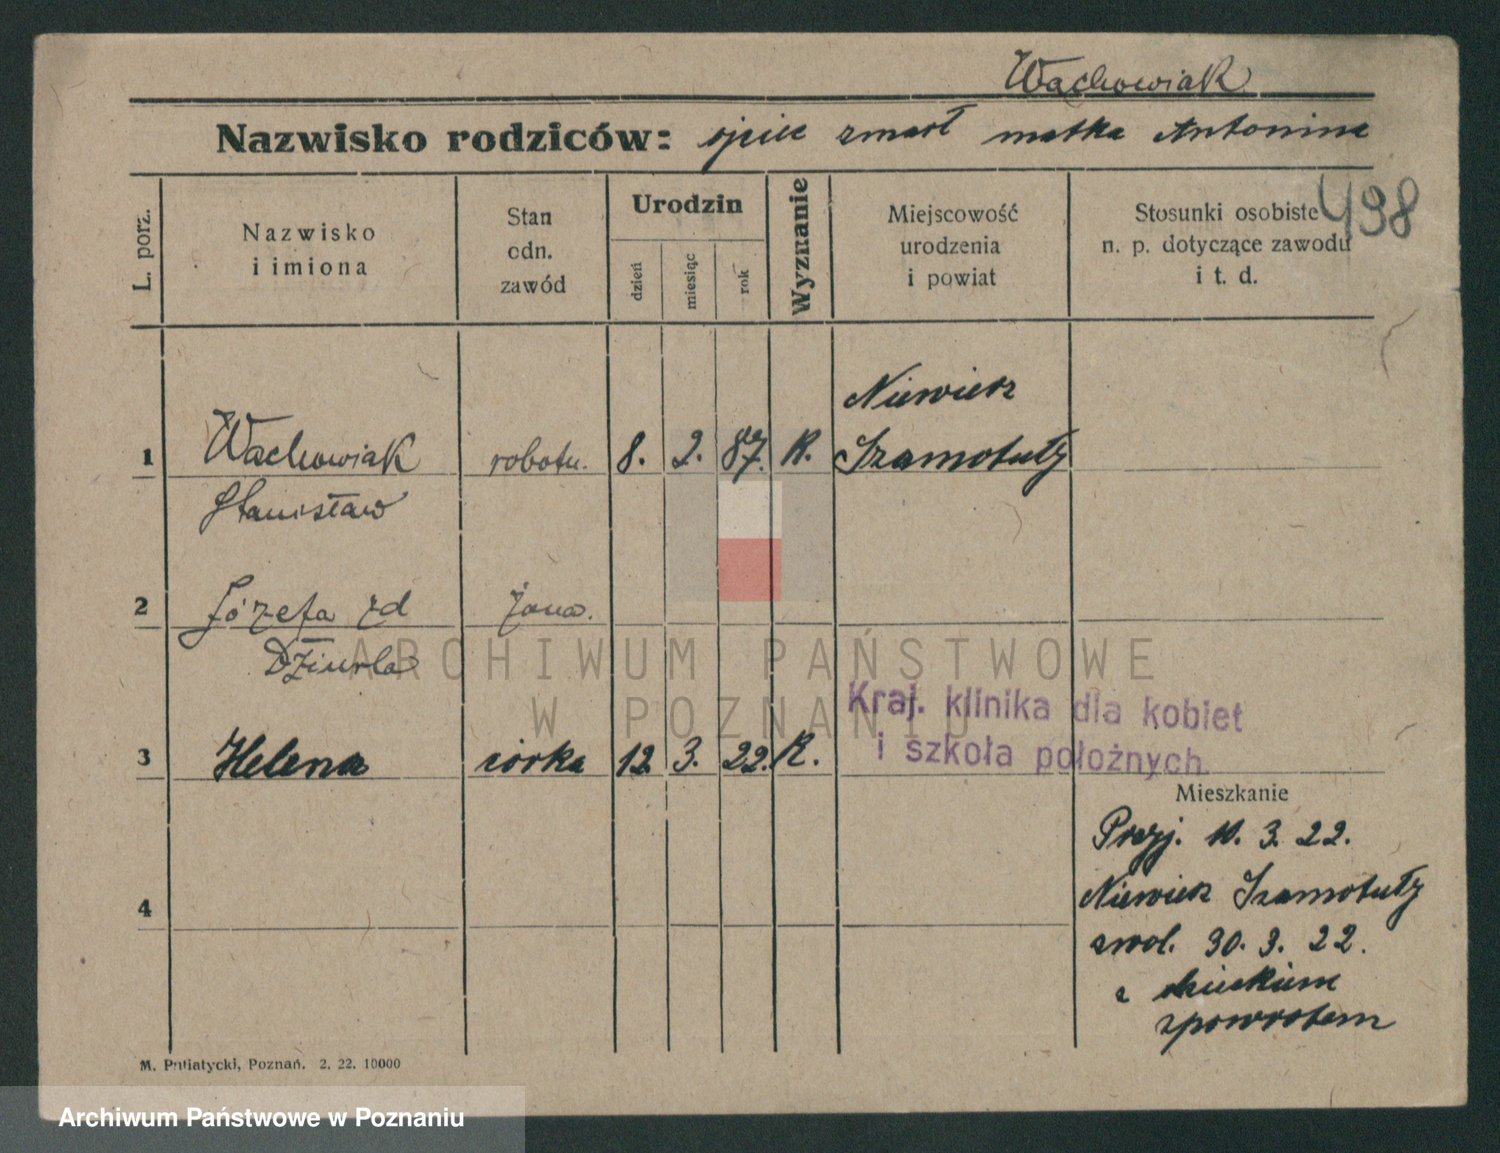 Wachowiak
Nazwisko rodziców: ojciec zmarł matka Antonina
498
L. porz.
Nazwisko
i imiona
Stan
odn.
zawód
Urodzin
dzień
miesiąc
rok
Wyznanie
Miejscowość
urodzenia
i powiat
Stosunki osobiste
n. p. dotyczące zawodu
i t. d.
Niewierz
1 Wachowiak robotn. 8. 2. 87. R. Szamotuły
Stanisław
2 Józefa zd żona.
Dziurla
ARCHIWUM PAŃSTWOWE
W POZNANIU
Kraj. klinika dla kobiet
i szkoła położnych.
3 Helena córka 12. 3. 22. R.
Mieszkanie
Przyj. 10. 3. 22.
Niewierz Szamotuły
4
zwol. 30. 3. 22.
z dzieckiem
zpowrotem
M. Putiatycki, Poznań. 2. 22. 10000
Archiwum Państwowe w Poznaniu